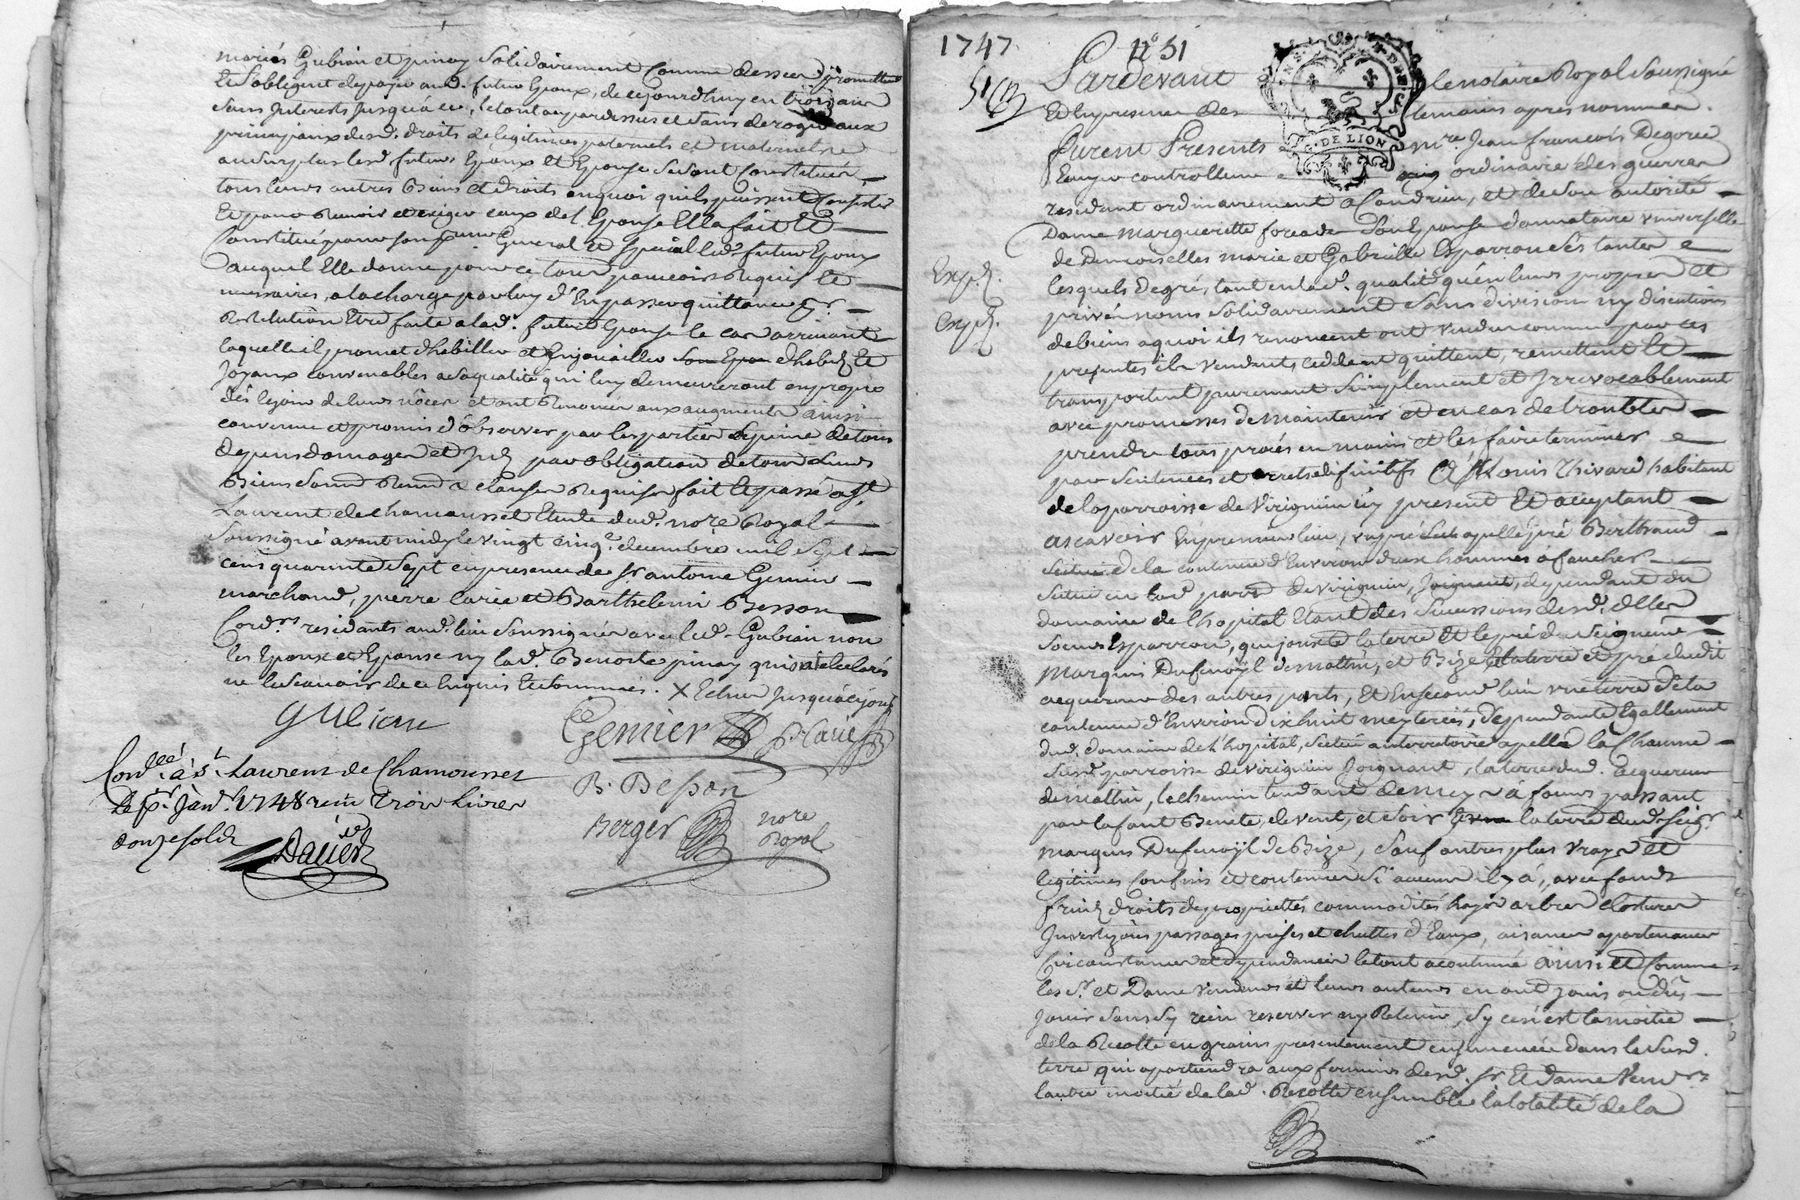 mariés Gubian et pinay Solidairement Comme dessus promettent
et Sobligent de payer aud. futur Epoux, de cejourdhuy en trois ans
Sans Interests Jusquà ce, le tout au pardessus et Sans deroger aux
principaux desd. droits de legitimes paternels et maternels
au surplus lesd. futurs Epoux et Epouse Se sont Constitués
tous leurs autres Biens et droits en quoi quils puissent Consister
Et pour Reuoir et exiger ceux de l'Epouse Elle a fait et
Constitué pour Son procur. General et Special led. futur Epoux
auquel Elle donne pour ce tous pouuoirs Requis et
necessaires, a la charge par luy d'En passer quittance
Restitution Etre faite a lad. future Epouse le cas arriuant
laquelle il promet dhabiller et Enjouailler dhabits Et
Joyaux conuenables a Sa qualité qui luy demeureront en propre
dès le jour de leurs nôces et ont Renoncé aux augments ainsi
conuenu et promis d'observer par les parties a peine de tous
depens domages et par obligation de tous Leurs
Biens Soum. Renon. & clauses Requises fait et passé a St.
Laurent de chamousset Etude dud. nore Royal
Soussigné auant midy le vingt cinq. decembre mil Sept
cens quarante Sept en presence de Sr antoine Genier
marchand, pierre Carie et Barthelemi Besson
Cord.rs residants aud. lieu Soussignés auec led. Gubian non
les Epoux et Epouse ny lad. Benoite pinay qui ont declarés
ne le Scauoir de ce Enquis et Sommés. X Echue Jusquà ce jour
Gubian
Genier
B. Besson
Berger nore
Royal
Conllé à St. Laurent de Chamousset
Le pr. Janr. 1748 reçu Trois Livres
douze sols
1747 n.° 51
51
Pardeuant le notaire Royal Soussigné
Et En presence des temoins apres nommés.
Furent Presents mre. Jean francois Degorée
Ecuyer controlleur ordinaire des guerres
residant ordinairement a Condrieu, et de Son autorité
Dame margueritte foreade Son Epouse donnataire vniverselle
de Demoiselles marie et Gabrielle Esparron Ses tantes
Exp.
lesquels de gré, tant en lad. qualité qu'en leurs propres et
Exp.
privés noms Solidairement Sans division ny discution
de biens a quoi ils renoncent ont vendu comme par ces
presentes ils vendent ceddent quittent, remettent et
transportent purement Simplement et Irrevocablement
avec promesses de maintenir et en cas de troubles
prendre tous procés en mains et les faire terminer
par Sentences et arrets definitifs A Sr. Louis Thivard habitant
de la parroisse de Virignieu icy present Et acceptant
ascavoir En premier lieu, vn pré Sech apellé pré Berthaud
de la contenue d'Environ deux hommes a faucher
Situé en lad. parr. de Virignieu, Joignant, dependant du
domaine de l'hopital Etant des Sucessions desd. Dlles
Soeurs Esparron, qui jouste la terre Et le pré du Seigneur
Marquis Dufenoÿl de matin, et Bize la terre et pré dudit
acquereur des autres parts, Et En Second lieu vne terre de la
contenue d'Environ dix huit meyterées, dependante Egallement
dud. domaine de l'hopital, Située au territoire apellé la Chaume
Susd. parroisse de Virignieu Joignant, la terre dud. acquereur
de matin, le chemin tendant de mey a feurs passant
par la font Benite de vent, et Soir la terre dud. Seigr
marquis Dufenoÿl de Bize, Sauf autres plus vrays et
legitimes Confins et contenues Si aucuns il y a, avec fonds
fruits droits de propriettés commodités hayes arbres clostures
Investisons passages prises et chuttes d'Eaux, aisances apartenances
Circonstances et dependances le tout acoutumé ainsi et Comme
les Sr. et Dame vendeurs et leurs auteurs en ont jouis ou dûs
Jouir Sans S'y rien reserver ny Retenir, Sy ce n'est la moitié
de la Recolte en grains presentement ensemencée dans la Susd.
terre qui apartiendra aux fermiers desd. Sr Et dame Vendrs
lautre moitié de lad. Recolte ensemble la totalité de la
DE LION